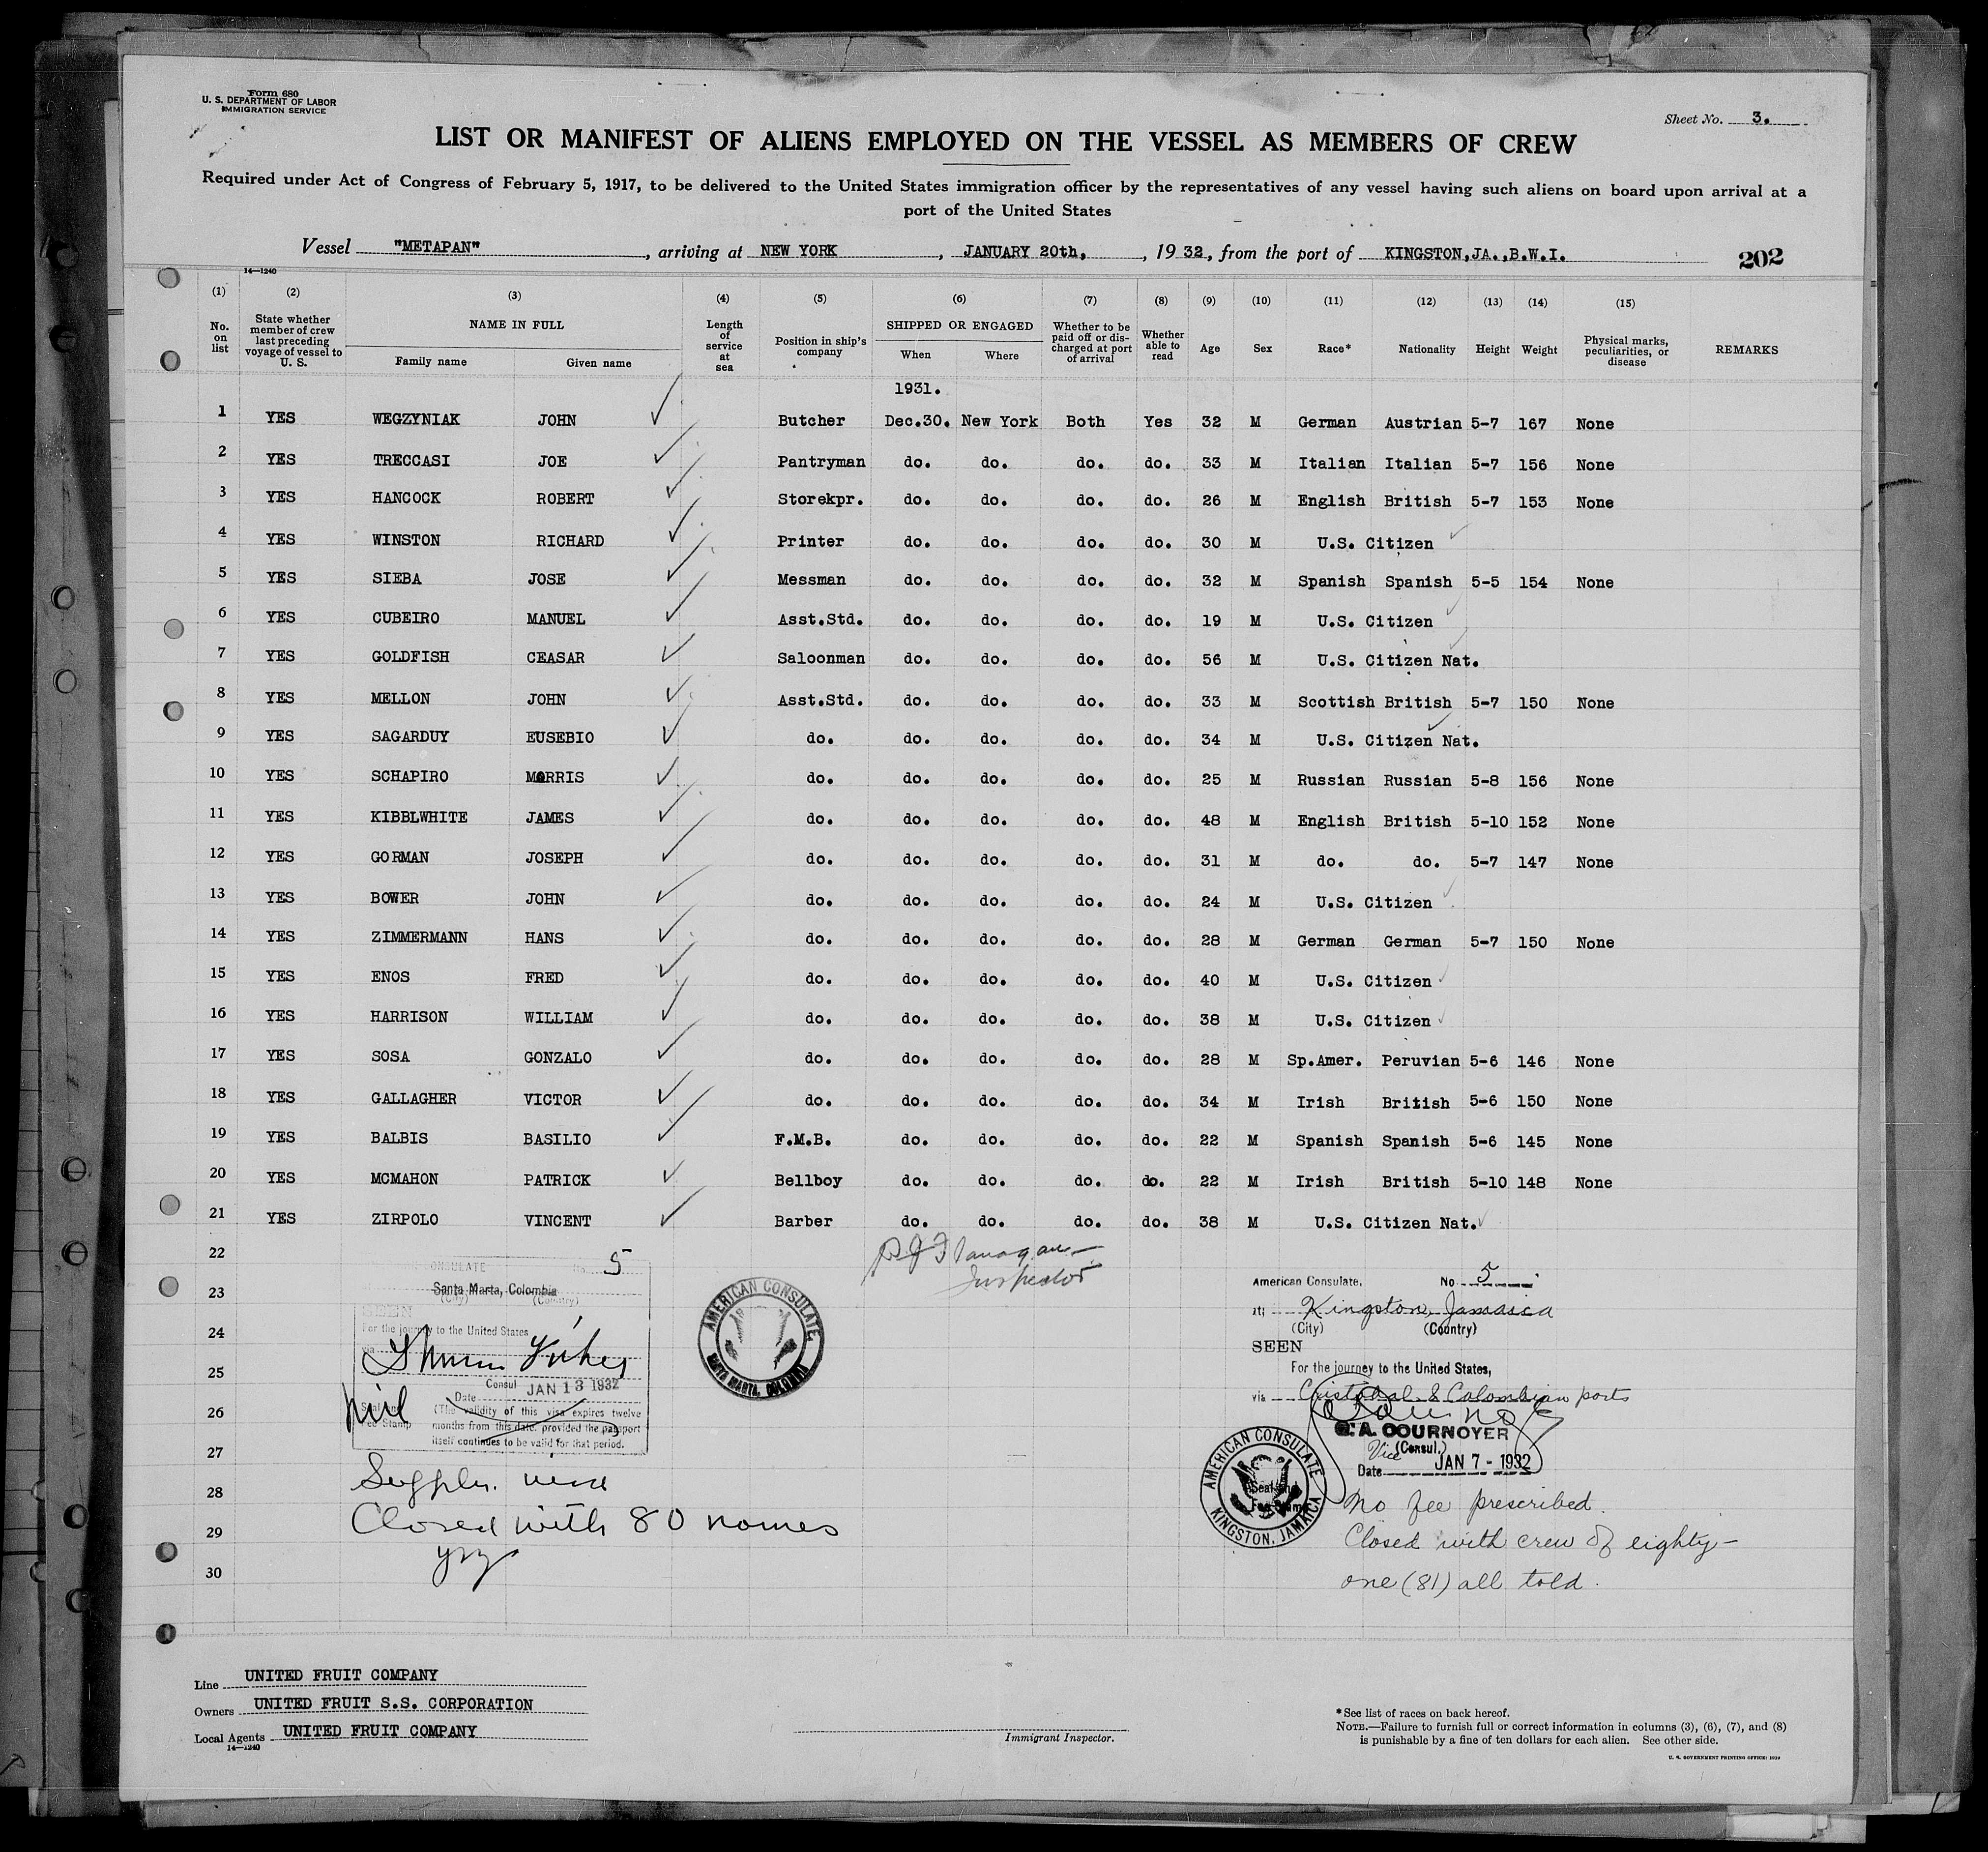 Form 680
U. S. DEPARTMENT OF LABOR
IMMIGRATION SERVICE
Sheet No. 3.
LIST OR MANIFEST OF ALIENS EMPLOYED ON THE VESSEL AS MEMBERS OF CREW
Required under Act of Congress of February 5, 1917, to be delivered to the United States immigration officer by the representatives of any vessel having such aliens on board upon arrival at a
port of the United States
Vessel "METAPAN", arriving at NEW YORK, JANUARY 20th, , 19 32, from the port of KINGSTON,JA.,B.W.I. 202
14—1240
(1) (2) (3) (4) (5) (6) (7) (8) (9) (10) (11) (12) (13) (14) (15)
No. on list State whether member of crew last preceding voyage of vessel to U. S. NAME IN FULL Family name Given name Length of service at sea Position in ship's company SHIPPED OR ENGAGED When Where Whether to be paid off or discharged at port of arrival Whether able to read Age Sex Race* Nationality Height Weight Physical marks, peculiarities, or disease REMARKS
1931.
1 YES WEGZYNIAK JOHN Butcher Dec.30. New York Both Yes 32 M German Austrian 5-7 167 None
2 YES TRECCASI JOE Pantryman do. do. do. do. 33 M Italian Italian 5-7 156 None
3 YES HANCOCK ROBERT Storekpr. do. do. do. do. 26 M English British 5-7 153 None
4 YES WINSTON RICHARD Printer do. do. do. do. 30 M U.S. Citizen
5 YES SIEBA JOSE Messman do. do. do. do. 32 M Spanish Spanish 5-5 154 None
6 YES CUBEIRO MANUEL Asst.Std. do. do. do. do. 19 M U.S. Citizen
7 YES GOLDFISH CEASAR Saloonman do. do. do. do. 56 M U.S. Citizen Nat.
8 YES MELLON JOHN Asst.Std. do. do. do. do. 33 M Scottish British 5-7 150 None
9 YES SAGARDUY EUSEBIO do. do. do. do. do. 34 M U.S. Citizen Nat.
10 YES SCHAPIRO MORRIS do. do. do. do. do. 25 M Russian Russian 5-8 156 None
11 YES KIBBLWHITE JAMES do. do. do. do. do. 48 M English British 5-10 152 None
12 YES GORMAN JOSEPH do. do. do. do. do. 31 M do. do. 5-7 147 None
13 YES BOWER JOHN do. do. do. do. do. 24 M U.S. Citizen
14 YES ZIMMERMANN HANS do. do. do. do. do. 28 M German German 5-7 150 None
15 YES ENOS FRED do. do. do. do. do. 40 M U.S. Citizen
16 YES HARRISON WILLIAM do. do. do. do. do. 38 M U.S. Citizen
17 YES SOSA GONZALO do. do. do. do. do. 28 M Sp.Amer. Peruvian 5-6 146 None
18 YES GALLAGHER VICTOR do. do. do. do. do. 34 M Irish British 5-6 150 None
19 YES BALBIS BASILIO F.M.B. do. do. do. do. 22 M Spanish Spanish 5-6 145 None
20 YES MCMAHON PATRICK Bellboy do. do. do. do. 22 M Irish British 5-10 148 None
21 YES ZIRPOLO VINCENT Barber do. do. do. do. 38 M U.S. Citizen Nat.
22
23
24
25
26
27
28
29
30
Flanagan
Inspector
CONSULATE No. 5
Santa Marta, Colombia
(City) (Country)
SEEN
For the journey to the United States
via
Consul
Date JAN 13 1932
nil
Fee Stamp
(The validity of this visa expires twelve
months from this date, provided the passport
itself continues to be valid for that period.
Supplem. visa
Closed with 80 names
AMERICAN CONSULATE, SANTA MARTA, COLOMBIA
American Consulate, No. 5
at Kingston, Jamaica
(City) (Country)
SEEN
For the journey to the United States,
via Cristobal & Colombian ports
C.A. COURNOYER
Vice (Consul.)
Date JAN 7 - 1932
AMERICAN CONSULATE KINGSTON, JAMAICA
Seal and
Fee Stamp
No fee prescribed.
Closed with crew of eighty-
one (81) all told.
Line UNITED FRUIT COMPANY
Owners UNITED FRUIT S.S. CORPORATION
Local Agents UNITED FRUIT COMPANY
14—1240
Immigrant Inspector.
*See list of races on back hereof.
NOTE.—Failure to furnish full or correct information in columns (3), (6), (7), and (8)
is punishable by a fine of ten dollars for each alien. See other side.
U. S. GOVERNMENT PRINTING OFFICE: 1929